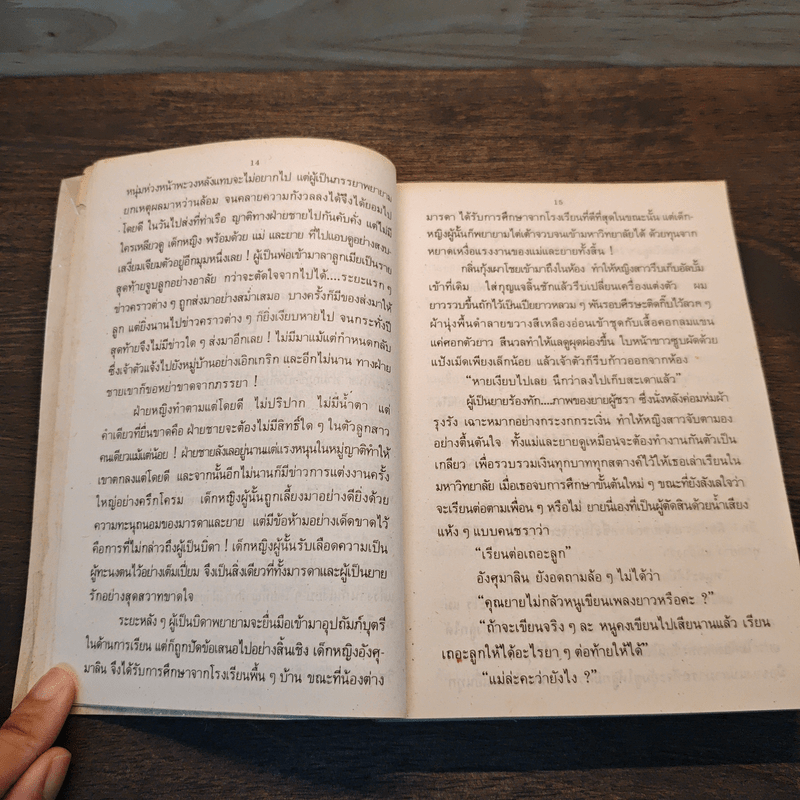 14
หนุ่มห่วงหน้าพะวงหลังแทบจะไม่อยากไป แต่ผู้เป็นภรรยาพยายาม
ยกเหตุผลมาหว่านล้อม จนคลายความกังวลลงได้จึงได้ยอมไป
โดยดี ในวันไปส่งที่ท่าเรือ ญาติทางฝ่ายชายไปกันคับคั่ง แต่ไม่มี
ใครเหลียวดู เด็กหญิง พร้อมด้วย แม่ และยาย ที่ไปแอบดูอย่างสงบ-
เสงี่ยมเจียมตัวอยู่อีกมุมหนึ่งเลย ! ผู้เป็นพ่อเข้ามาลาลูกเมียเป็นราย
สุดท้ายจูบลูกอย่างอาลัย กว่าจะตัดใจจากไปได้....ระยะแรก ๆ
ข่าวคราวต่าง ๆ ถูกส่งมาอย่างสม่ำเสมอ บางครั้งก็มีของส่งมาให้
ลูก แต่ยิ่งนานไปข่าวคราวต่าง ๆ ก็ยิ่งเงียบหายไป จนกระทั่งปี
สุดท้ายจึงไม่มีข่าวใด ๆ ส่งมาอีกเลย ! ไม่มีมาแม้แต่กำหนดกลับ
ซึ่งเจ้าตัวแจ้งไปยังหมู่บ้านอย่างเอิกเกริก และอีกไม่นาน ทางฝ่าย
ชายเขาก็ขอหย่าขาดจากภรรยา !
ฝ่ายหญิงทำตามแต่โดยดี ไม่ปริปาก ไม่มีน้ำตา แต่
คำเดียวที่ยื่นขาดคือ ฝ่ายชายจะต้องไม่มีสิทธิ์ใด ๆ ในตัวลูกสาว
คนเดียวแม้แต่น้อย ! ฝ่ายชายลังเลอยู่นานแต่แรงหนุนในหมู่ญาติทำให้
เขาตกลงแต่โดยดี และจากนั้นอีกไม่นานก็มีข่าวการแต่งงานครั้ง
ใหญ่อย่างครึกโครม เด็กหญิงผู้นั้นถูกเลี้ยงมาอย่างดียิ่งด้วย
ความทะนุถนอมของมารดาและยาย แต่มีข้อห้ามอย่างเด็ดขาดไว้
คือการที่ไม่กล่าวถึงผู้เป็นบิดา ! เด็กหญิงผู้นั้นรับเลือดความเป็น
ผู้ทะนงตนไว้อย่างเต็มเปี่ยม จึงเป็นสิ่งเดียวที่ทั้งมารดาและผู้เป็นยาย
รักอย่างสุดสวาทขาดใจ
ระยะหลัง ๆ ผู้เป็นบิดาพยายามจะยื่นมือเข้ามาอุปถัมภ์บุตรี
ในด้านการเรียน แต่ก็ถูกปัดข้อเสนอไปอย่างสิ้นเชิง เด็กหญิงอังศุ-
มาลิน จึงได้รับการศึกษาจากโรงเรียนพื้น ๆ บ้าน ขณะที่น้องต่าง
15
มารดา ได้รับการศึกษาจากโรงเรียนที่ดีที่สุดในขณะนั้น แต่เด็ก-
หญิงผู้นั้นก็พยายามไต่เต้าจวบจนเข้ามหาวิทยาลัยได้ ด้วยทุนจาก
หยาดเหงื่อแรงงานของแม่และยายทั้งสิ้น !
กลิ่นกุ้งเผาโชยเข้ามาถึงในห้อง ทำให้หญิงสาวรีบเก็บอัลบั้ม
เข้าที่เดิม ใส่กุญแจลิ้นชักแล้วรีบเปลี่ยนเครื่องแต่งตัว ผม
ยาวรวบขึ้นถักไว้เป็นเปียยาวหลวม ๆ พันรอบศีรษะติดกิ๊บไว้ลวก ๆ
ผ้านุ่งพื้นดำลายขวางสีเหลืองอ่อนเข้าชุดกับเสื้อคอกลมแขน
แค่ศอกตัวยาว สีนวลทำให้แลดูผุดผ่องขึ้น ใบหน้าขาวซูบผัดด้วย
แป้งเม็ดเพียงเล็กน้อย แล้วเจ้าตัวก็รีบก้าวออกจากห้อง
“หายเงียบไปเลย นึกว่าลงไปเก็บสะเดาแล้ว”
ผู้เป็นยายร้องทัก....ภาพของยายผู้ชรา ซึ่งนั่งหลังค่อมห่มผ้า
รุงรัง เฉาะหมากอย่างกระงกกระเงิ่น ทำให้หญิงสาวจับตามอง
อย่างตื้นตันใจ ทั้งแม่และยายดูเหมือนจะต้องทำงานกันตัวเป็น
เกลียว เพื่อรวบรวมเงินทุกบาททุกสตางค์ไว้ให้เธอเล่าเรียนใน
มหาวิทยาลัย เมื่อเธอจบการศึกษาขั้นต้นใหม่ ๆ ขณะที่ยังลังเลใจว่า
จะเรียนต่อตามเพื่อน ๆ หรือไม่ ยายนี่เองที่เป็นผู้ตัดสินด้วยน้ำเสียง
แห้ง ๆ แบบคนชราว่า
“เรียนต่อเถอะลูก”
อังศุมาลิน ยังอดถามล้อ ๆ ไม่ได้ว่า
“คุณยายไม่กลัวหนูเขียนเพลงยาวหรือคะ ?”
“ถ้าจะเขียนจริง ๆ ละ หนูคงเขียนไปเสียนานแล้ว เรียน
เถอะลูกให้ได้อะไรยา ๆ ต่อท้ายให้ได้”
“แม่ล่ะคะว่ายังไง ?”